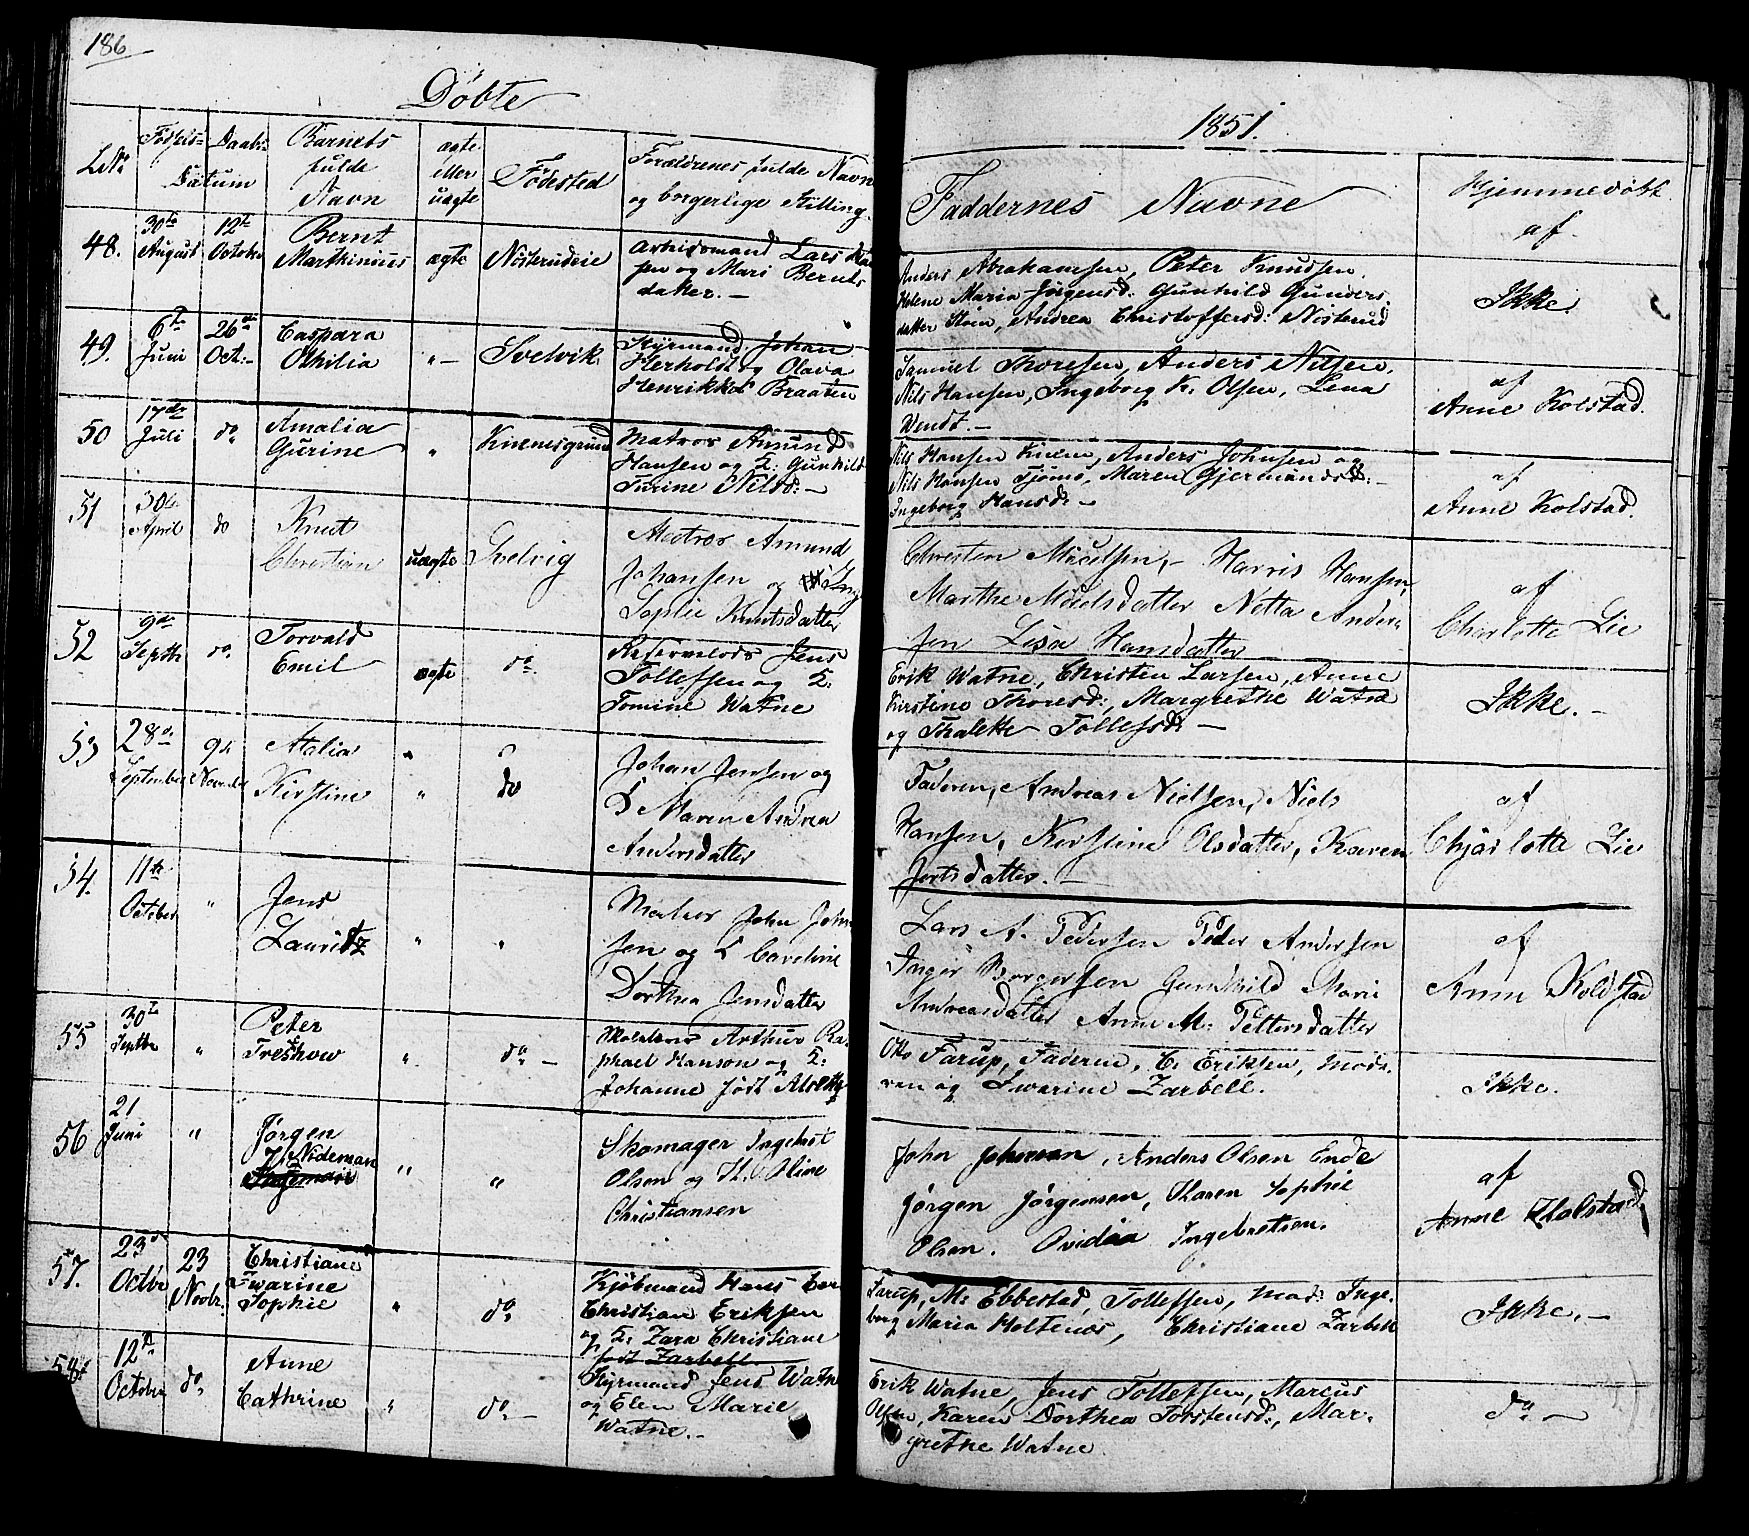 186
Døbte
1851.
LNo Fødsels- Daabs- Barnets ægte Fødested Forældrenes fulde Navn Faddernes Navne Hjemmedøbt
Datum fulde eller og borgerlige Stilling. af.
Navn uægte
48. 30te 12te Bernt
August October Marthinius ægte Nøsterudeie
Arbeidsmand Lars
sen og Mari Bernts
datter.-
Anders Abrahamsen, Peter Knudsen.
Helene Maria Jørgensd: Gunhild Gunders.
datter Støen, Andrea Christoffersd: Nøsterud
Ikke.
49. 6te 26de Caspara
Juni Oct:- Othilia "- Svelvik.
Styrmand Johan
Herholdt og Olava
Henrikke Braaten
Samuel Thoresen, Anders Nilsen,
Nils Hansen, Ingeborg K. Olsen, Lena
Wendt.-
af
Anne Kolstad.
50 17de Amalia
Juli do. Gurine " Kinnesgrund
Matros Amund
Hansen og K: Gunhild
Turine Nilsd:-
Nils Hansen Knem, Anders Johnsen og
Nils Hansen Tjømø, Maren Gjermundsd:-
Ingeborg Hansd:-
af
Anne Kolstad.
51 30te Knut
April do Christian uægte Svelvig
Matros Amund
Johansen og Ing
Sophie Knutsdatter
Christen Micelsen,- Harris Hansen,
Marthe Micelsdatter Netta Ander-
sen Lisa Hansdatter
af
Charlotte Lie
52 9de Torvald
Septbr do. Emil ægte do.
Jens
Tollefsen og K:
Tomine Watne
Erik Watne, Christen Larsen, Anne
Kirstine Thoresd:, Margrethe Watne
og Thalette Tollefsd:-
Ikke.-
53 28de 9de Atalia
September November Kirstine " do
Johan Jensen og
K Maren Andrea
Andersdatter
Faderen, Andreas Nielsen, Niels
Hansen, Kirstine Olsdatter, Karen
Jortsdatter.-
af
Chjarlotte Lie
54. 11te
October " Jens
Lauritz " "
Matros John John
sen og K Caroline
Dorthea Jensdatter
Lars A. Pedersen Peder Andersen
Inger Borgersen Gunhild Marie
Andreasdatter Anne M: Pettersdatter
af
Ann Koldstad
55 30te Peter
Septbr " Treshow " do.-
Arthur Ra-
phael Hanson og K:
Johanne født
Otto Farup, Faderen, C. Eriksen, Mode-
ren og Swarine Zarbell.
Ikke.
56 21 Jørgen
Juni " Nodeman
" "
Skomager Ingebret
Olsen og Th. Oline
Christiansen
John Johnsen, Anders Olsen Ende
Jørgen Jørgensen, Karen Sophie
Olsen. Ovidia Ingebretsen.
af
Anne Kolstad
57. 23de 23 Christiane
Octbr Novbr. Swarine
Sophie " do.
Kjøbmand Hans Carl
Christian Eriksen
og K: Zara Christiane
født Zarbell
Farup, M: Ebbestad, Tollefsen, Mad: Inge-
borg Maria Holtenøs, Christiane Zarbell
Ikke.-
58 12te Anne
October do. Cathrine " do.-
Styrmand Jens Watne
og Elen Marie
Watne.-
Erik Watne, Jens Tollefsen, Marcus
Olsen, Karen Dorthea Torstensd:, Mar-
grethe Watne.
do.-